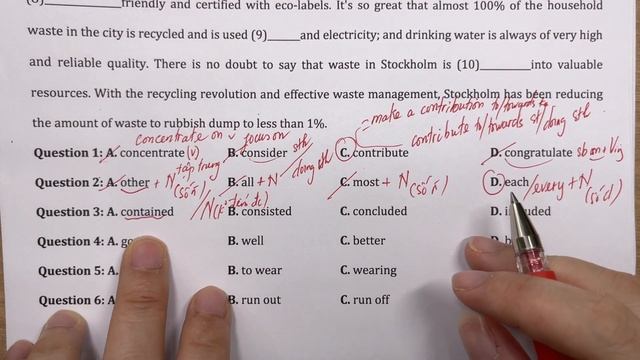 friendly and certified with eco-labels. It's so great that almost 100% of the household
waste in the city is recycled and is used (9)______and electricity; and drinking water is always of very high
and reliable quality. There is no doubt to say that waste in Stockholm is (10)________into valuable
resources. With the recycling revolution and effective waste management, Stockholm has been reducing
the amount of waste to rubbish dump to less than 1%.
make a contribution to/towards
concentrate on focus on
contribute to/towards st/doing sth
Question 1: A. concentrate (v) B. consider sth C. contribute D. congratulate sb on + Ving
tập trung doing sth
Question 2: A. other + N B. all + N C. most + N D. each/every + N
(số n) (số n) (số ít)
Question 3: A. contained B. consisted C. concluded D.
Question 4: A. B. well C. better D.
Question 5: A. B. to wear C. wearing
Question 6: A. B. run out C. run off